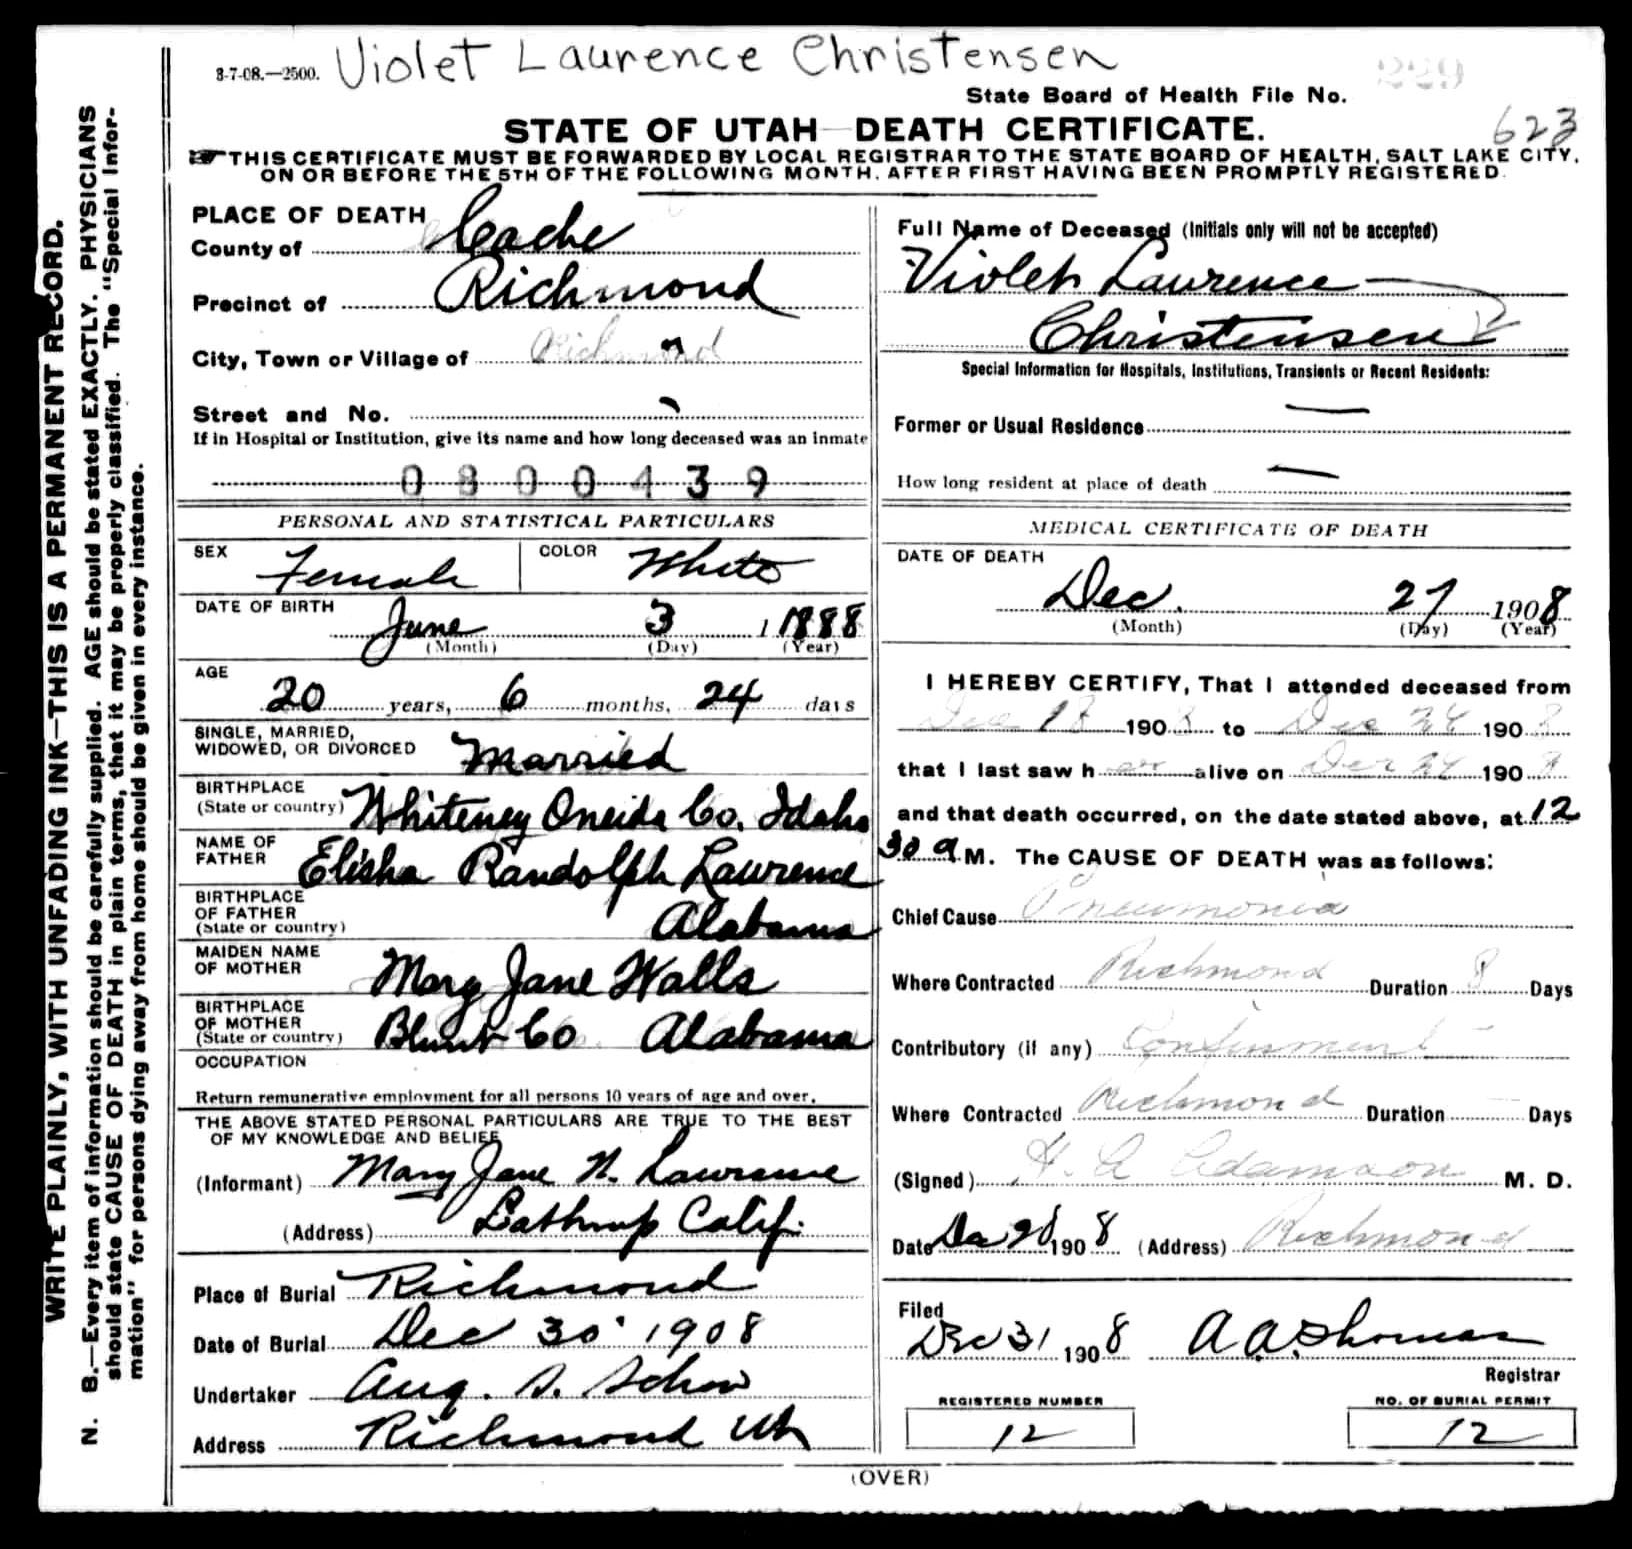 3-7-08.—2500. Violet Laurence Christensen
229
State Board of Health File No.
623
STATE OF UTAH—DEATH CERTIFICATE.
THIS CERTIFICATE MUST BE FORWARDED BY LOCAL REGISTRAR TO THE STATE BOARD OF HEALTH, SALT LAKE CITY,
ON OR BEFORE THE 5TH OF THE FOLLOWING MONTH, AFTER FIRST HAVING BEEN PROMPTLY REGISTERED.
WRITE PLAINLY, WITH UNFADING INK—THIS IS A PERMANENT RECORD.
N. B.—Every item of information should be carefully supplied. AGE should be stated EXACTLY. PHYSICIANS
should state CAUSE OF DEATH in plain terms, that it may be properly classified. The "Special Infor-
mation" for persons dying away from home should be given in every instance.
PLACE OF DEATH
County of Cache
Precinct of Richmond
City, Town or Village of Richmond
Street and No.
If in Hospital or Institution, give its name and how long deceased was an inmate
0800439
PERSONAL AND STATISTICAL PARTICULARS
SEX Female COLOR White
DATE OF BIRTH
June 3 1 1888
(Month) (Day) (Year)
AGE
20 years, 6 months, 24 days
SINGLE, MARRIED,
WIDOWED, OR DIVORCED Married
BIRTHPLACE
(State or country) Whiteney Oneida Co. Idaho
NAME OF
FATHER Elisha Randolph Lawrence
BIRTHPLACE
OF FATHER
(State or country) Alabama
MAIDEN NAME
OF MOTHER Mary Jane Walls
BIRTHPLACE
OF MOTHER
(State or country) Blunt Co Alabama
OCCUPATION
Return remunerative employment for all persons 10 years of age and over.
THE ABOVE STATED PERSONAL PARTICULARS ARE TRUE TO THE BEST
OF MY KNOWLEDGE AND BELIEF
(Informant) Mary Jane W. Lawrence
(Address) Lathrup Calif.
Place of Burial Richmond
Date of Burial Dec 30 1908
Undertaker Aug. S. Schow
Address Richmond Ut
Full Name of Deceased (Initials only will not be accepted)
Violet Lawrence
Christensen
Special Information for Hospitals, Institutions, Transients or Recent Residents:
Former or Usual Residence —
How long resident at place of death —
MEDICAL CERTIFICATE OF DEATH
DATE OF DEATH
Dec. 27 1908
(Month) (Day) (Year)
I HEREBY CERTIFY, That I attended deceased from
Dec 18 1908 to Dec 26 1908
that I last saw her alive on Dec 26 1908
and that death occurred, on the date stated above, at 12
30 a M. The CAUSE OF DEATH was as follows:
Chief Cause Pneumonia
Where Contracted Richmond Duration 8 Days
Contributory (if any) Confinement
Where Contracted Richmond Duration — Days
(Signed) H. A Adamson M. D.
Date Dec 28 1908 (Address) Richmond
Filed
Dec 31 1908 A A Thomas
Registrar
REGISTERED NUMBER NO. OF BURIAL PERMIT
12 12
(OVER)